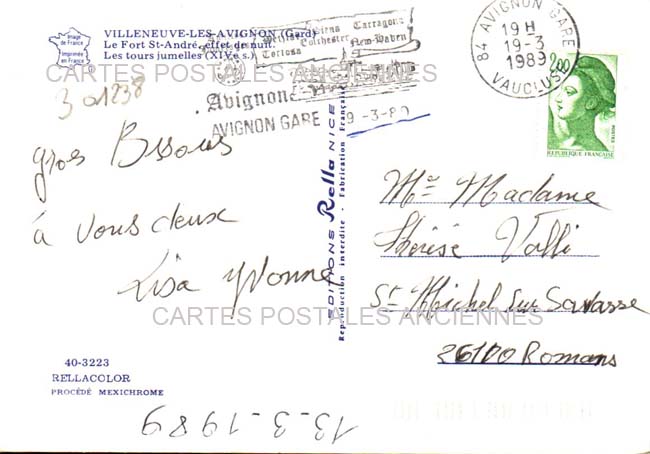 Image
de France
Imprimé
en France
VILLENEUVE-LES-AVIGNON (Gard)
Le Fort St-André, effet de nuit.
Les tours jumelles (XIVe s.)
CARTES POSTALES ANCIENNES
3 01238
Tarragona
Colchester New-Haven
Tortosa
Avignon
AVIGNON GARE 19-3-89
84 AVIGNON GARE
19 H
19-3
1989
VAUCLUSE
2,00
POSTES
REPUBLIQUE FRANÇAISE
gros Bisous
à vous deux
Lisa Yvonne
EDITIONS Rella NICE
Reproduction interdite - Fabrication Française
Mr Madame
Thérèse Valli
St Michel sur Savasse
26100 Romans
CARTES POSTALES ANCIENNES
40-3223
RELLACOLOR
PROCÉDÉ MEXICHROME
13-3-1989